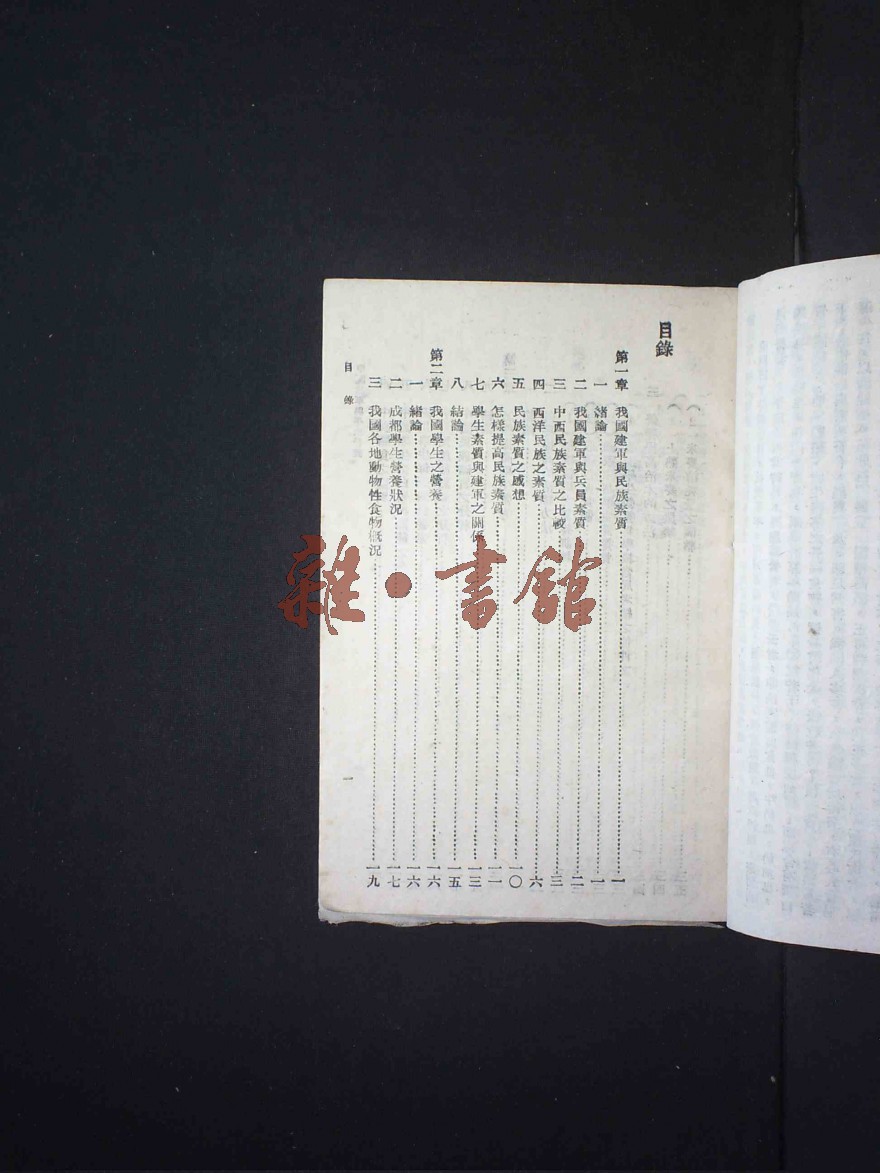 目錄
第一章 我國建軍與民族素質……一
一 緒論……一
二 我國建軍與兵員素質……二
三 中西民族素質之比較……三
四 西洋民族之素質……六
五 民族素質之感想……一〇
六 怎樣提高民族素質……一一
七 學生素質與建軍之關係……一三
八 結論……一五
第二章 我國學生之營養……一六
一 緒論……一六
二 成都學生營養狀況……一七
三 我國各地動物性食物概況……一九
目錄
一
雜·書館